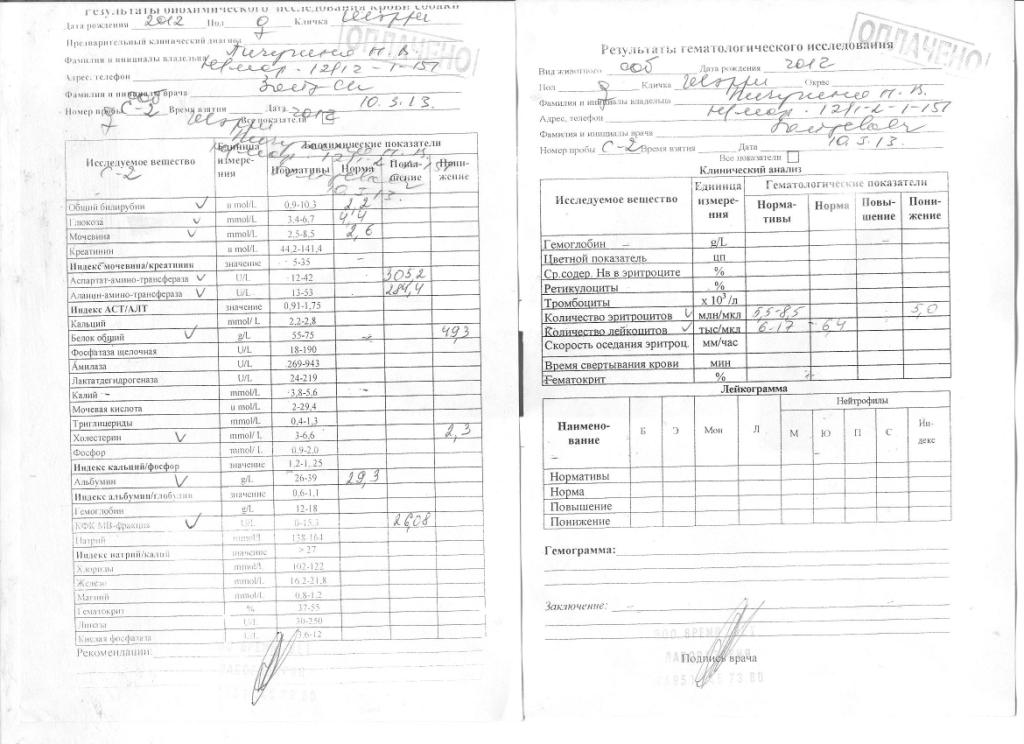 Результаты биохимического исследования крови собаки
Дата рождения 2012 Пол Кличка Шерри
Предварительный клинический диагноз
Фамилия и инициалы владельца Пичугина Н. В.
Адрес, телефон
Фамилия и инициалы врача
Номер пробы С-2 Время взятия Дата 10.3.13.
Все показатели
Исследуемое вещество Единица измере-ния Биохимические показатели
Нормативы Норма Повы-шение Пони-жение
С-2
Общий билирубин u mol/L 0,9-10,3 2,2
Глюкоза mmol/L 3,4-6,7 4,4
Мочевина mmol/L 2,5-8,5 2,6
Креатинин u mol/L 44,2-141,4
Индекс мочевина/креатинин значение 5-35
Аспартат-амино-трансфераза U/L 12-42 3052
Аланин-амино-трансфераза U/L 13-53 284,4
Индекс АСТ/АЛТ значение 0,91-1,75
Кальций mmol/ L 2,2-2,8
Белок общий g/L 55-75 49,3
Фосфатаза щелочная U/L 18-190
Амилаза U/L 269-943
Лактатдегидрогеназа U/L 24-219
Калий mmol/L 3,8-5,6
Мочевая кислота u mol/L 2-29,4
Триглицериды mmol/L 0,4-1,3
Холестерин mmol/ L 3-6,6 2,3
Фосфор mmol/ L 0,9-2,0
Индекс кальций/фосфор значение 1,2-1, 25
Альбумин g/L 26-39 29,3
Индекс альбумин/глобулин значение 0,6-1,1
Гемоглобин g/L 12-18
КФК МВ-фракция U/L 0-15,3 26,08
Натрий mmol/L 138-164
Индекс натрий/калий значение > 27
Хлориды mmol/L 102-122
Железо mmol/L 16,2-21,8
Магний mmol/L 0,8-1,2
Гематокрит % 37-55
Липаза U/L 30-250
Кислая фосфатаза U/L 3,6-12
Рекомендации:
ОПЛАЧЕНО
Результаты гематологического исследования
Вид животного соб Дата рождения 2012
Пол Кличка Шерри Окрас
Фамилия и инициалы владельца Пичугина Н. В.
Адрес, телефон
Фамилия и инициалы врача
Номер пробы С-2 Время взятия Дата 10.3.13.
Все показатели
Клинический анализ
Исследуемое вещество Единица измере-ния Гематологические показатели
Норма-тивы Норма Повы-шение Пони-жение
Гемоглобин g/L
Цветной показатель цп
Ср.содер. Нв в эритроците %
Ретикулоциты %
Тромбоциты х 10³ /л
Количество эритроцитов млн/мкл 5,5-8,5 5,0
Количество лейкоцитов тыс/мкл 6-17 6,4
Скорость оседания эритроц. мм/час
Время свертывания крови мин
Гематокрит %
Лейкограмма
Наимено-вание Б Э Мон Л Нейтрофилы Ин-декс
М Ю П С
Нормативы
Норма
Повышение
Понижение
Гемограмма:
Заключение:
Подпись врача
ОПЛАЧЕНО